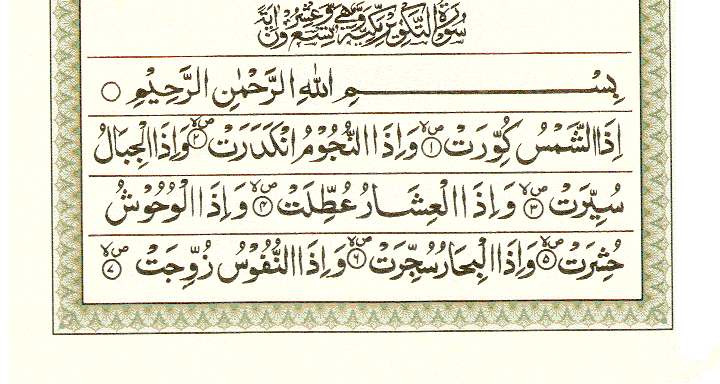 سُوْرَةُ التَّكْوِيْرِ مَكِّيَّةٌ وَّهِيَ تِسْعٌ وَّعِشْرُوْنَ اٰيَةً
بِسْمِ اللّٰهِ الرَّحْمٰنِ الرَّحِيْمِ
اِذَا الشَّمْسُ كُوِّرَتْ ۙ﴿۱﴾ وَاِذَا النُّجُوْمُ انْكَدَرَتْ ۙ﴿۲﴾ وَاِذَا الْجِبَالُ
سُيِّرَتْ ۙ﴿۳﴾ وَاِذَا الْعِشَارُ عُطِّلَتْ ۙ﴿۴﴾ وَاِذَا الْوُحُوْشُ
حُشِرَتْ ۙ﴿۵﴾ وَاِذَا الْبِحَارُ سُجِّرَتْ ۙ﴿۶﴾ وَاِذَا النُّفُوْسُ زُوِّجَتْ ۙ﴿۷﴾